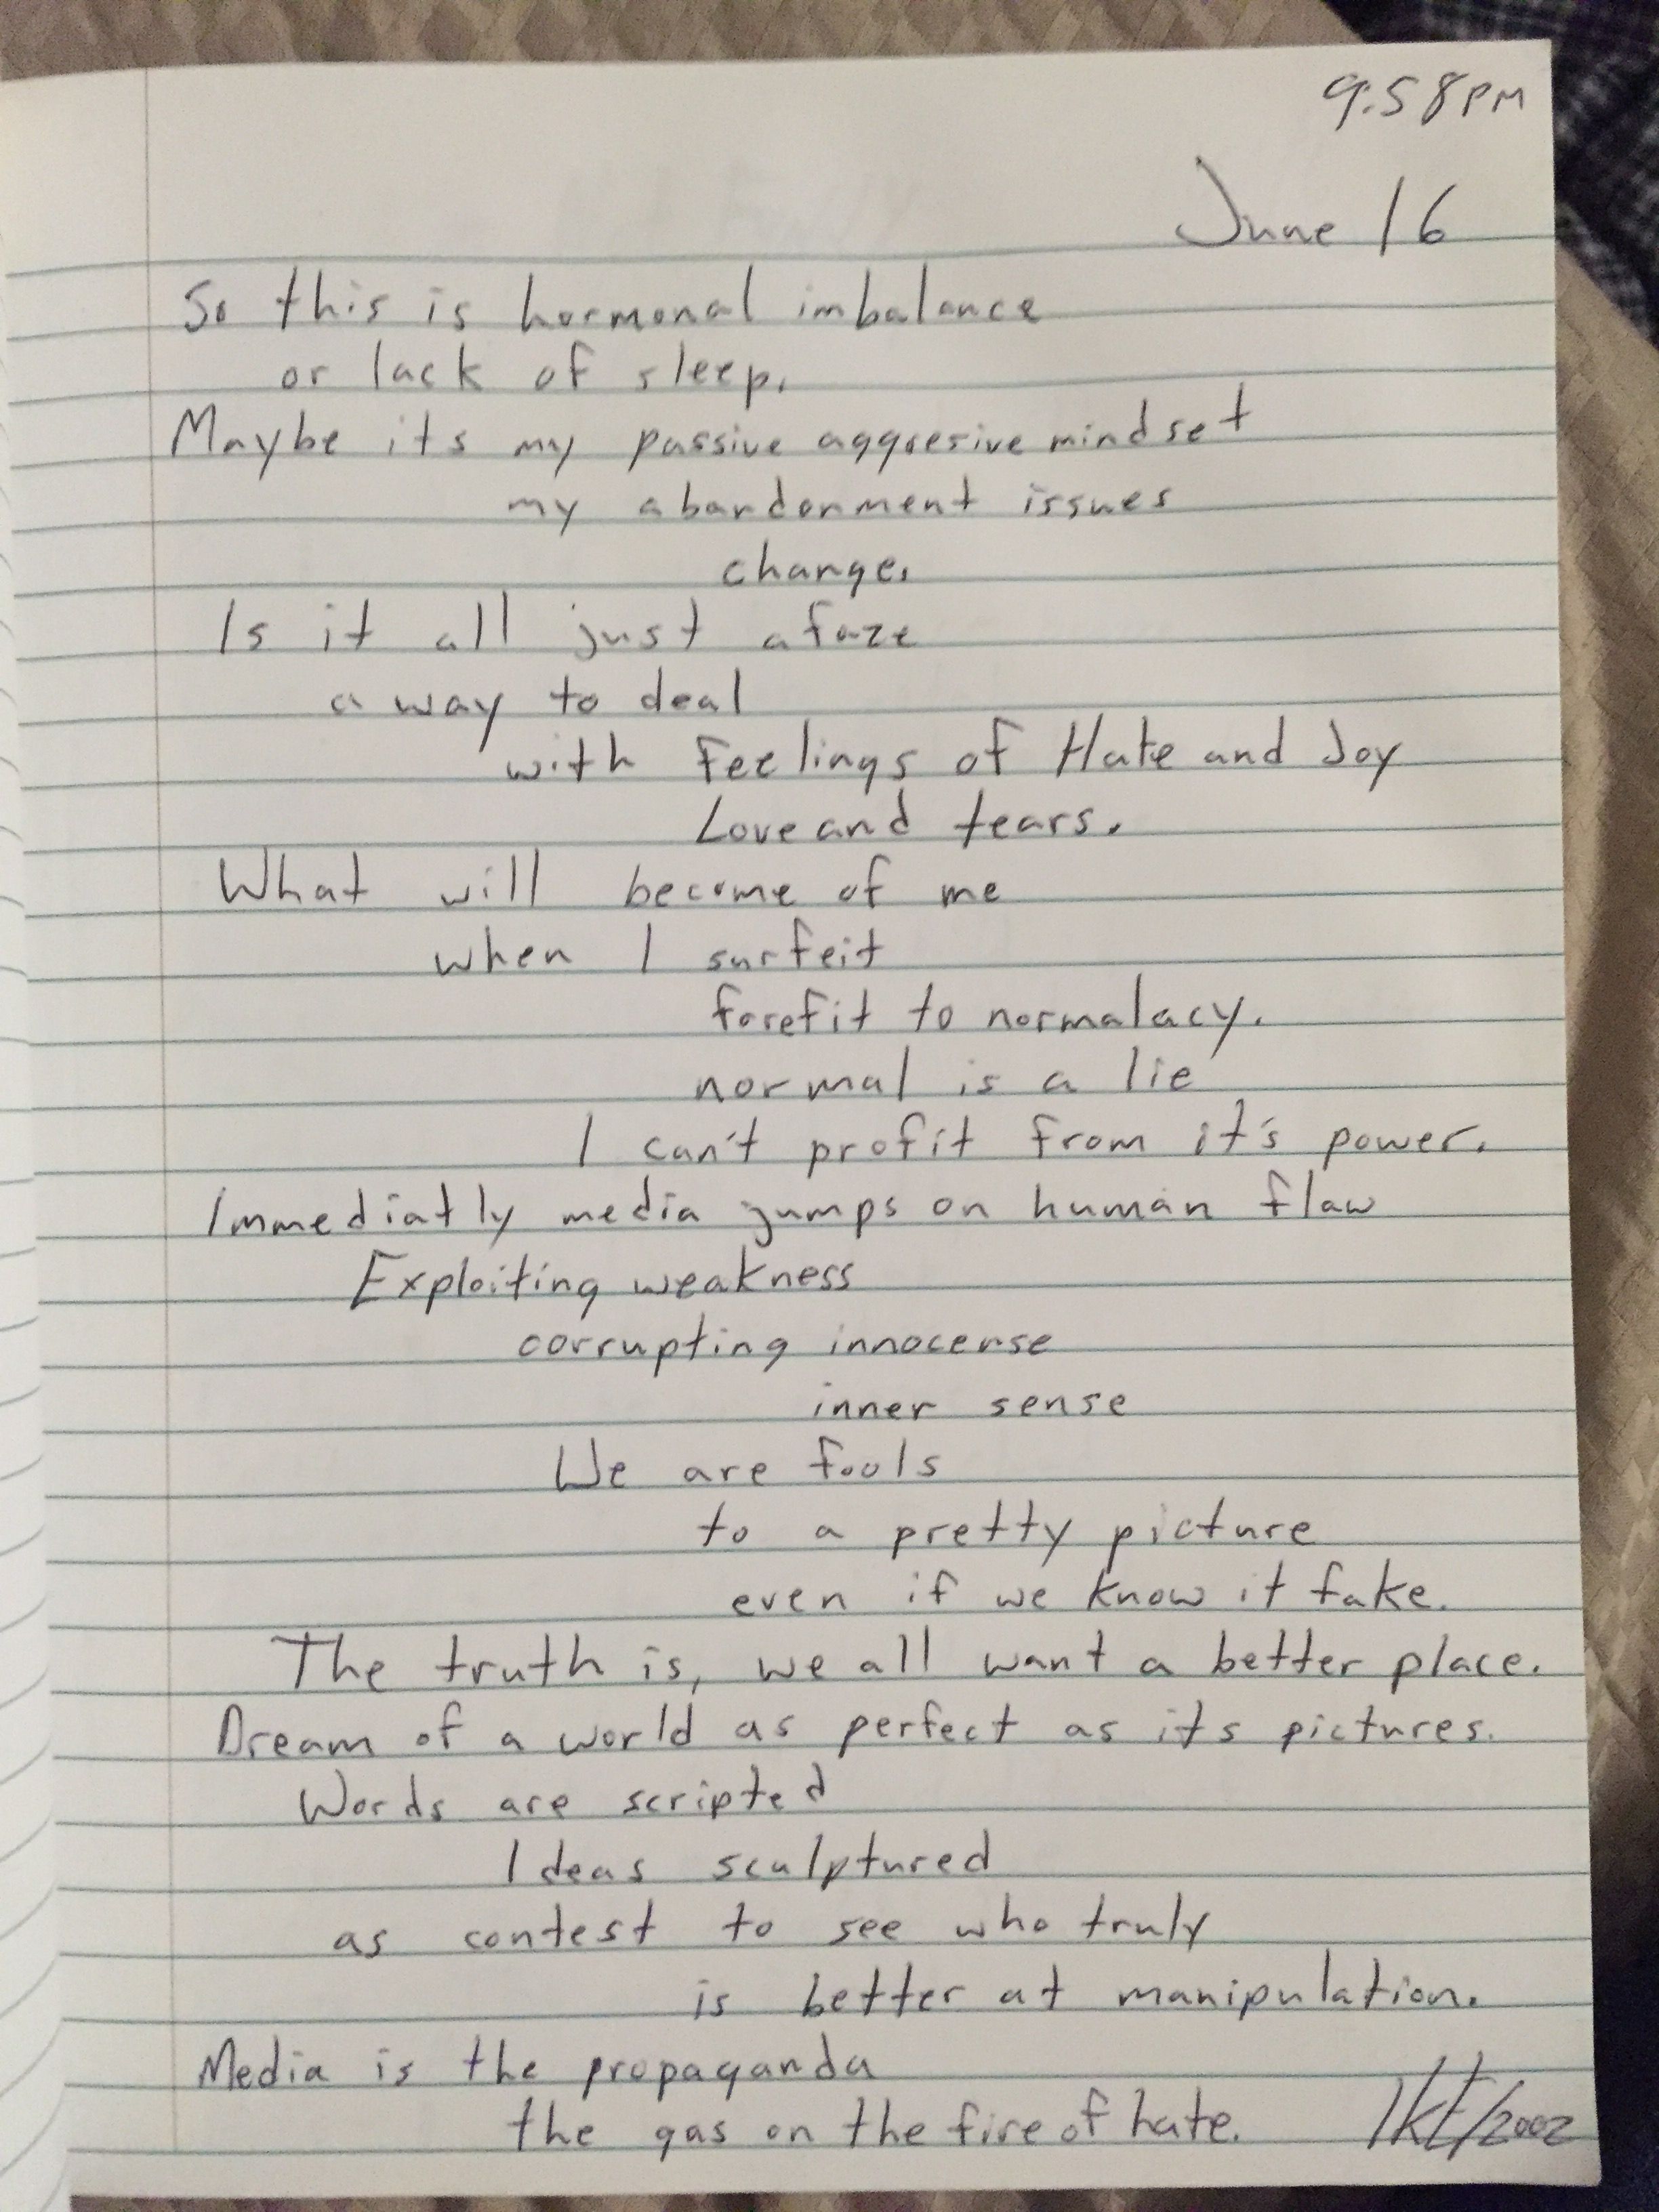 9:58PM
June 16
So this is hormonal imbalance
or lack of sleep.
Maybe its my passive aggresive mindset
my abandonment issues
change.
Is it all just a faze
a way to deal
with Feelings of Hate and Joy
Love and tears.
What will become of me
when I surfeit
forefit to normalacy.
normal is a lie
I can't profit from it's power.
Immediatly media jumps on human flaw
Exploiting weakness
corrupting innocense
inner sense
We are fools
to a pretty picture
even if we know it fake.
The truth is, we all want a better place.
Dream of a world as perfect as its pictures.
Words are scripted
Ideas sculptured
as contest to see who truly
is better at manipulation.
Media is the propaganda
the gas on the fire of hate.
/2002